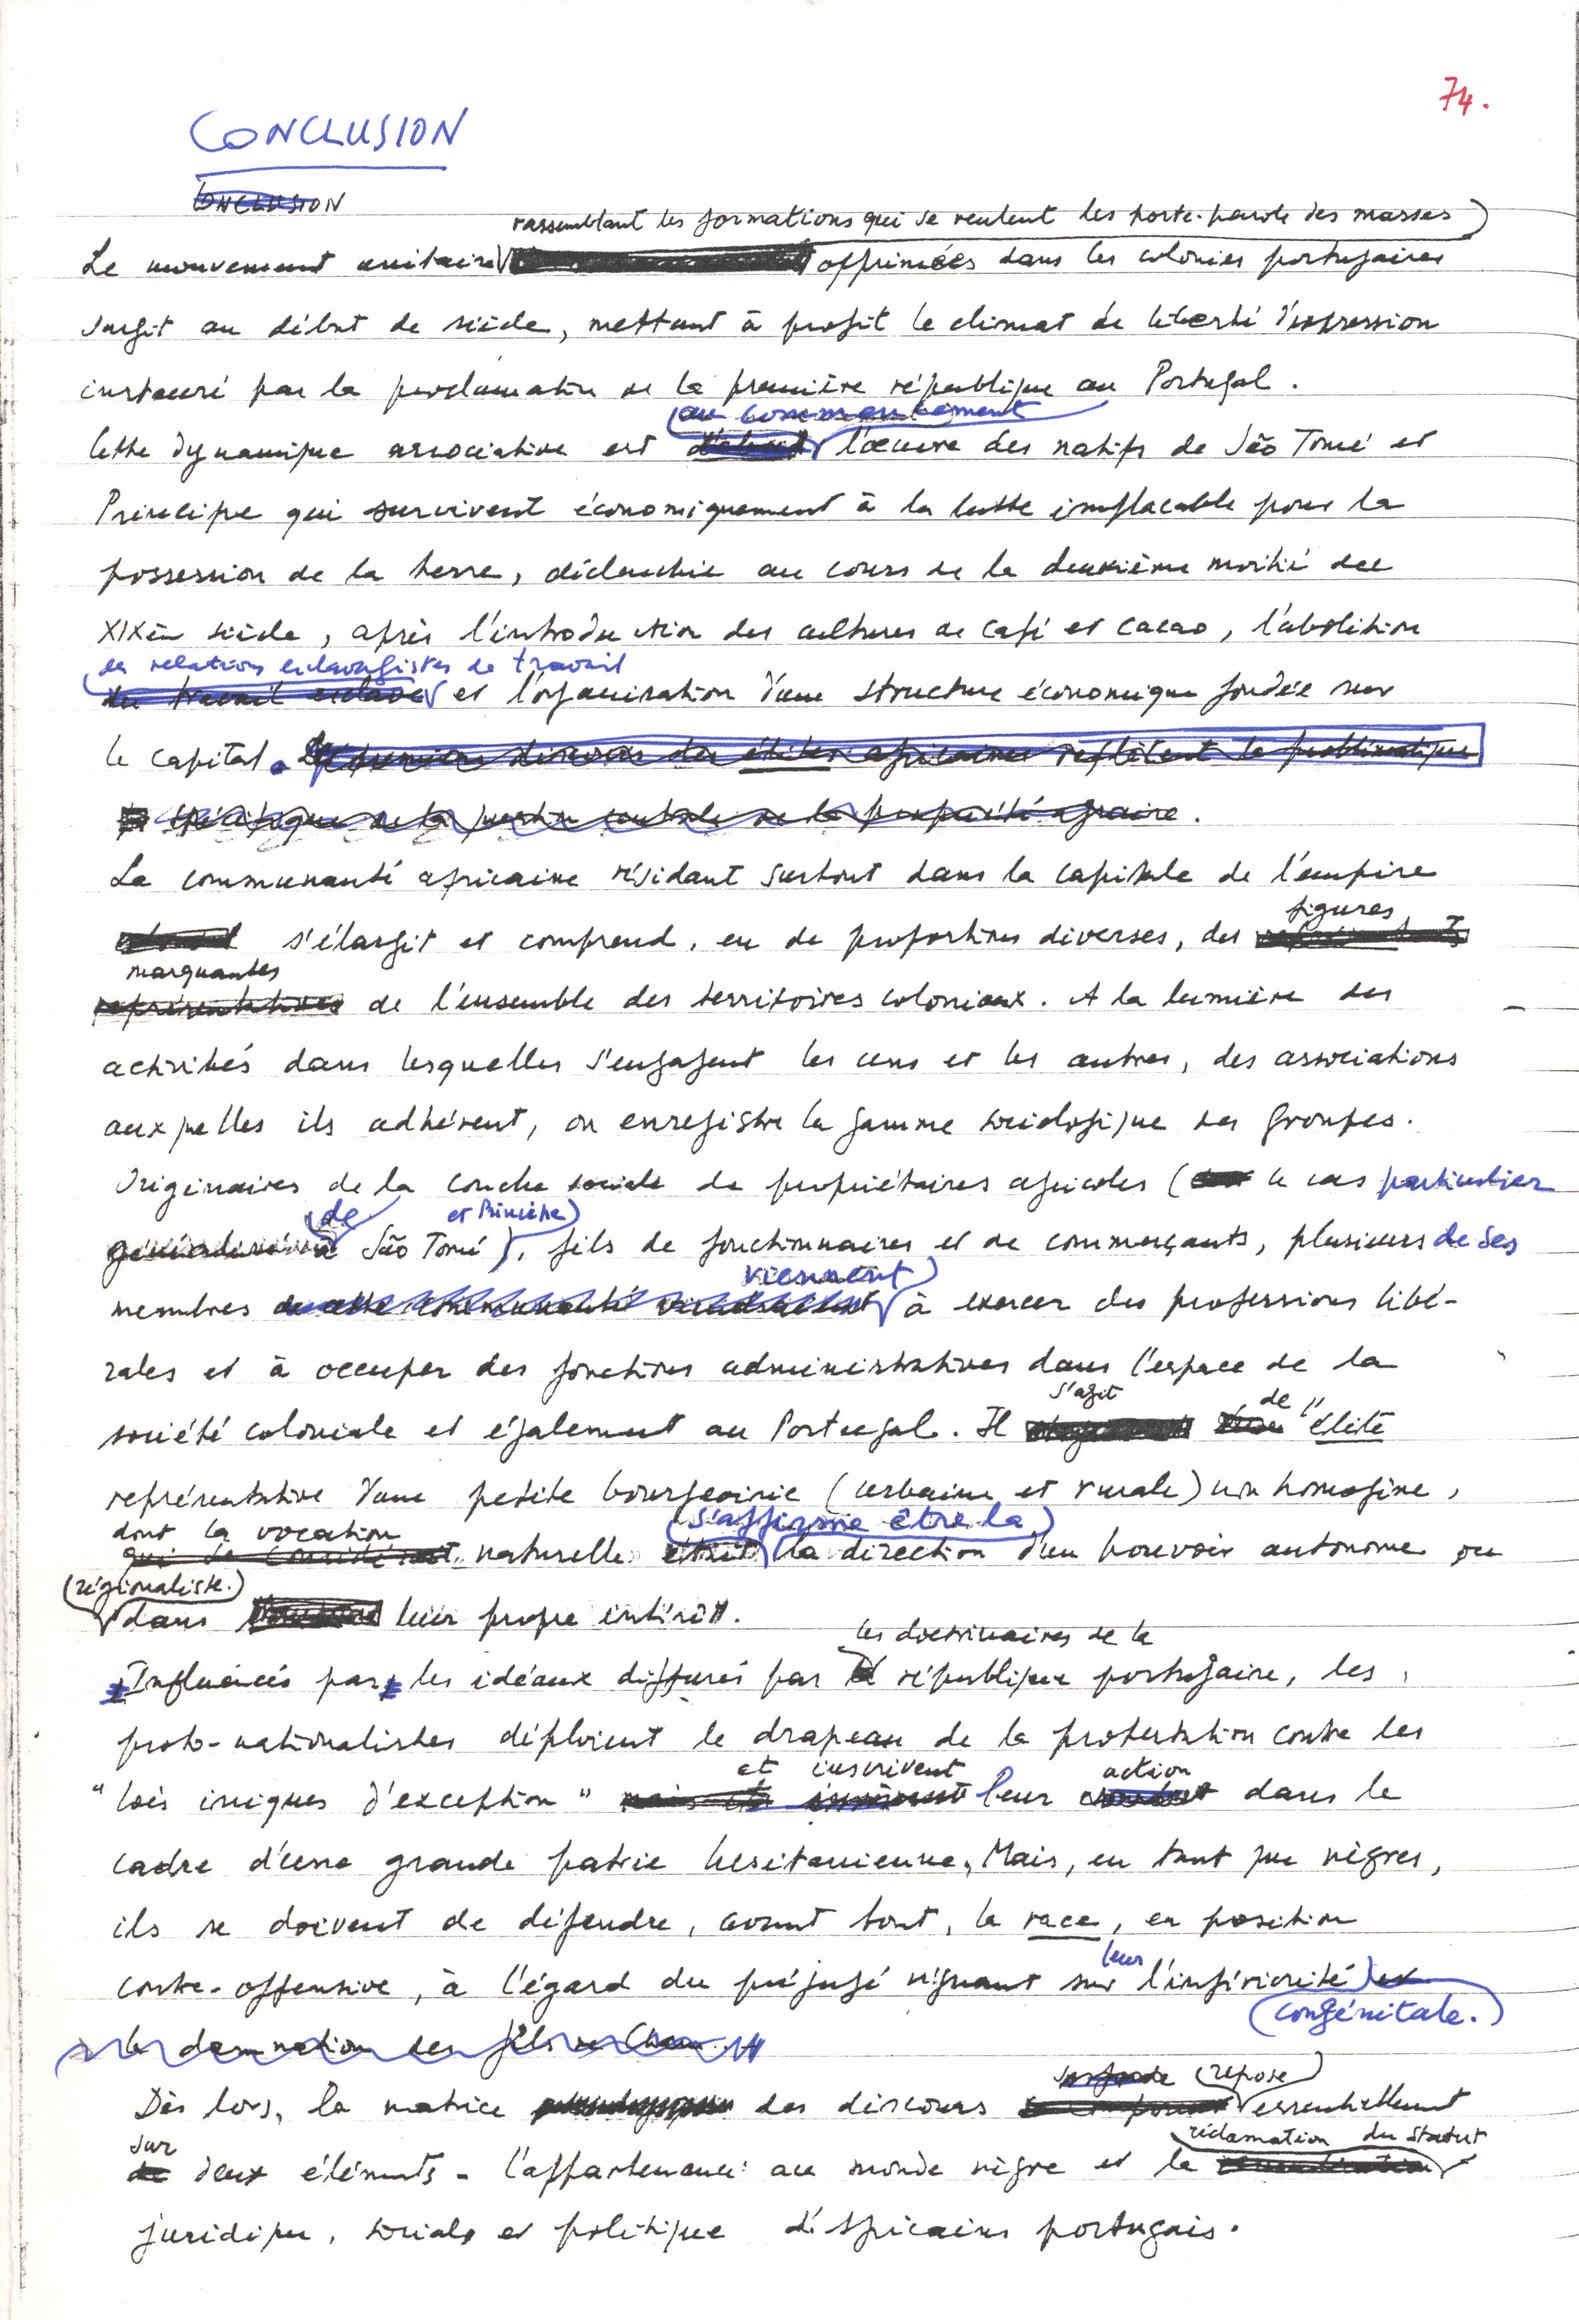 74.
CONCLUSION
CONCLUSION
rassemblant les formations qui se veulent les porte-parole des masses
Le mouvement unitaire opprimées dans les colonies portugaises
surgit au début de siècle, mettant à profit le climat de liberté d'expression
instauré par la proclamation de la première république au Portugal.
au commencement
Cette dynamique associative est d'abord l'œuvre des natifs de São Tomé et
Principe qui survivent économiquement à la lutte implacable pour la
possession de la terre, déclenchée au cours de la deuxième moitié du
XIXèm siècle, après l'introduction des cultures de café et cacao, l'abolition
des relations esclavagistes de travail
du travail esclave et l'organisation d'une structure économique fondée sur
le capital. Les premiers discours des élites africaines reflètent la problématique
spécifique de la question centrale de la propriété agraire.
La communauté africaine résidant surtout dans la capitale de l'empire
figures
colonial s'élargit et comprend, en de proportions diverses, des
marquantes
représentatives de l'ensemble des territoires coloniaux. A la lumière des
activités dans lesquelles s'engagent les uns et les autres, des associations
auxquelles ils adhérent, on enregistre la gamme sociologique des groupes.
Originaires de la couche sociale de propriétaires agricoles ( le cas particulier
de et Principe)
à São Tomé), fils de fonctionnaires et de commerçants, plusieurs de ses
viennent
membres de cette communauté viendraient à exercer des professions libé-
rales et à occuper des fonctions administratives dans l'espace de la
s'agit de
société coloniale et également au Portugal. Il d'une "élite
représentative d'une petite bourgeoisie (urbaine et rurale) non homogène,
dont la vocation s'affirme être la
qui se considérait naturelle était la direction d'un pouvoir autonome ou
(régionaliste.)
dans leur propre intérêt.
les doctrinaires de la
Influencés par les idéaux diffusés par la république portugaise, les
proto-nationalistes déploient le drapeau de la protestation contre les
et inscrivent action
"lois iniques d'exception" mais ils inscrivent leur combat dans le
cadre d'une grande patrie lusitanienne. Mais, en tant que nègres,
ils se doivent de défendre, avant tout, la race, en position
leur
contre-offensive, à l'égard du préjugé régnant sur l'infériorité et
(congénitale.)
la damnation des fils de Cham.
se fonde (repose)
Dès lors, la matrice des discours se compose essentiellement
sur réclamation du statut
de deux éléments - l'appartenance au monde nègre et la revendication
juridique, sociale et politique d'Africains portugais.